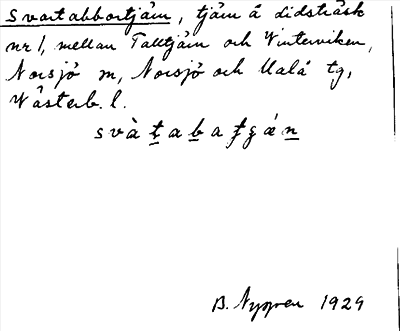 Svartabbortjärn, tjärn å didsträsk
nr 1, mellan Talltjärn och Winterviken,
Norsjö sn, Norsjö och Malå tg,
Västerb. l.
svàṯaḇaṯgáṉ
B. Nygren 1929